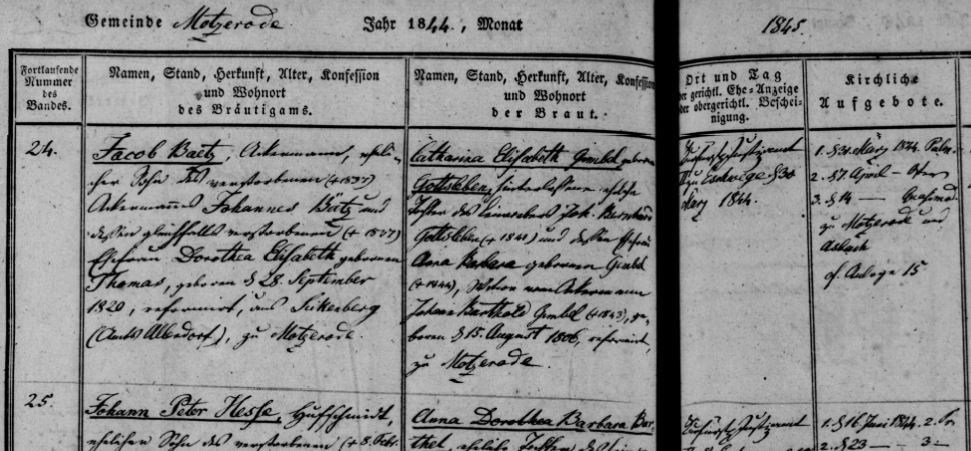 Gemeinde Motzerode. Jahr 1844., Monat
1845.
Fortlaufende
Nummer
des
Bandes.
Namen, Stand, Herkunft, Alter, Konfession
und Wohnort
des Bräutigams.
Namen, Stand, Herkunft, Alter, Konfession
und Wohnort
der Braut.
Ort und Tag
der gerichtl. Ehe-Anzeige
der obergerichtl. Beschei-
nigung.
Kirchliche
Aufgebote.
24.
Jacob Baetz, Ackermann, eheli-
cher Sohn des verstorbenen (+1837)
Ackermannes Johannes Bätz und
dessen gleichfalls verstorbenen
Ehefrau Dorothea Elisabeth gebornen
Thomas, geboren d 28. September
1820, reformirt, aus
zu Motzerode.
Catharina Elisabeth Gimbel geborne
Gottsleben, hinterlassene eheliche
Tochter des Joh. Bernhard
Gottsleben (+1841) und dessen Ehefrau
Anna Barbara gebornen Gimbel
(+1844), Witwe vom Ackermann
Johann Barthold Gimbel (+1843), ge-
boren d 15. August 1806, reformirt,
zu Motzerode.
Kurfürstl. Justizamt
zu Eschwege d 30
März 1844.
1. d 31. März 1844. Palm.
2. d 7. April — Ostern
3. d 14 — Quasimod.
zu Motzerode und
Asbach
cf. Anlage 15.
25.
Johann Peter Hesse, Hufschmidt,
ehelichen Sohn des verstorbenen
Anna Dorothea Barbara Bar-
thel, eheliche Tochter
Kurfürstl. Justizamt
1. d 16. Juni 1844. 2.
2. d 23 — 3 —